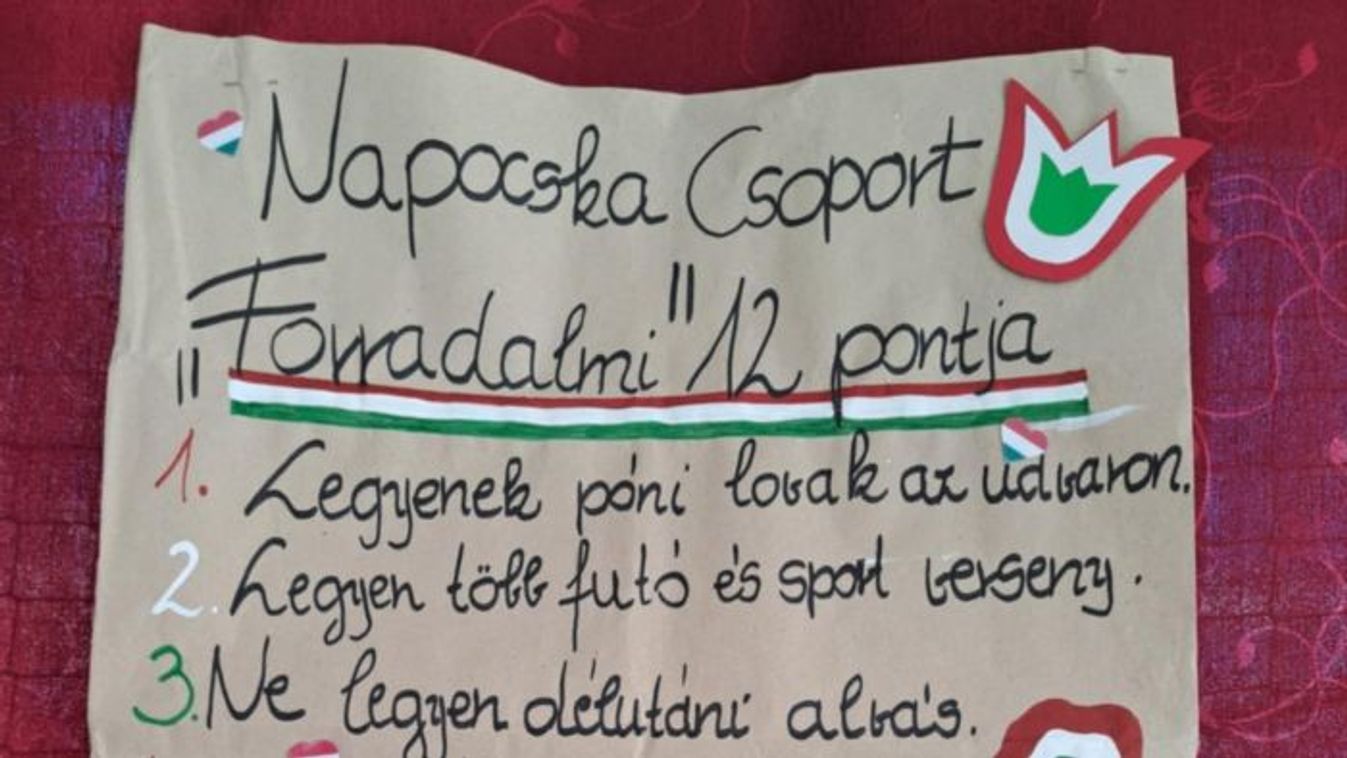 Napocska Csoport
"Forradalmi" 12 pontja
1. Legyenek póni lovak az udvaron.
2. Legyen több futó és sport verseny.
3. Ne legyen délutáni alvás.